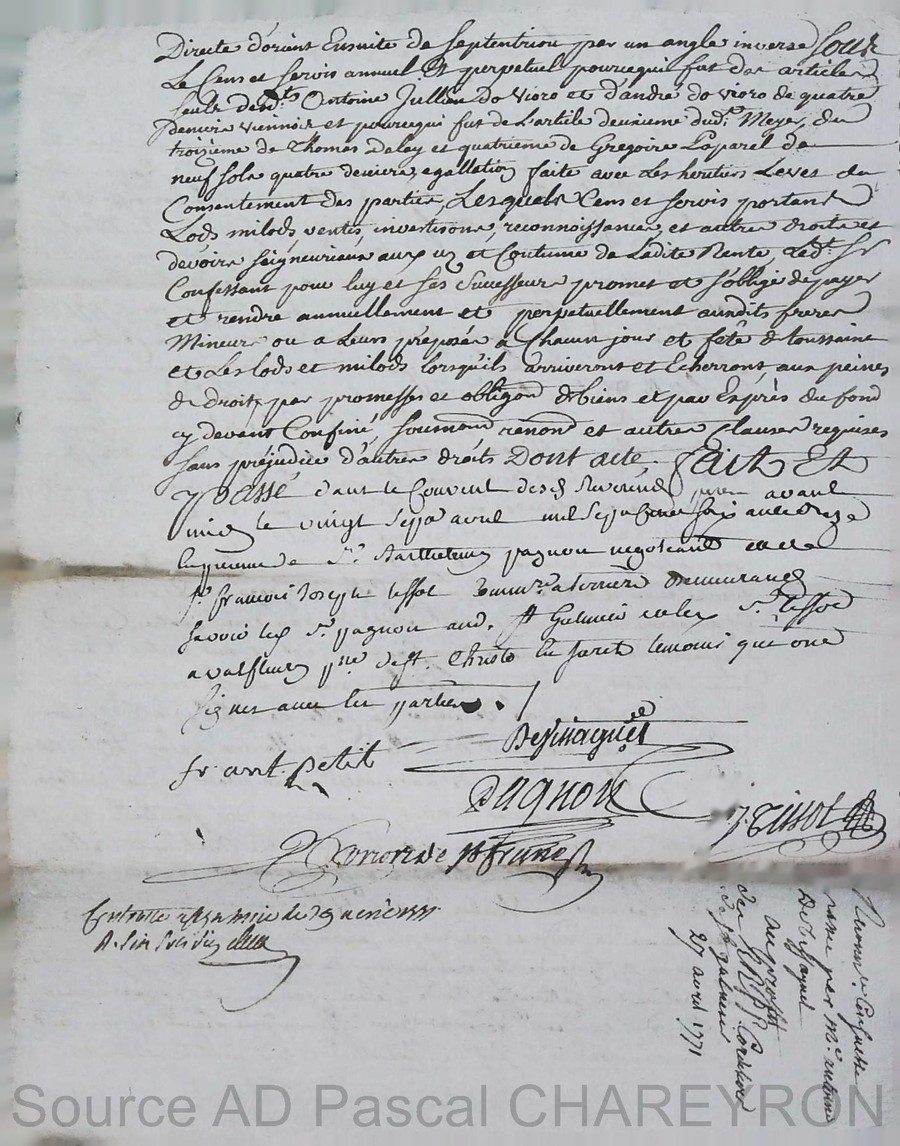 Directe d'orient Ensuite de Septentrion par un angle inverse Sous
Le Cens et servis annuel Et perpetuel pour ce qui fut des articles
seuls dud.t Antoine Jullien do vioro et d'andré do vioro de quatre
deniers viennois et pour ce qui fut de L'article deuxieme dud.t Meyer, du
troizieme de Thomas Delay et quatrieme de Gregoire Laparel de
neuf sols quatre deniers, egallation faite avec Les heritiers Leves du
Consentement des parties, Lesquels Cens et servis portant
Lods milods, ventes, investisons, reconnoissances, et autres droits et
devoirs seigneuriaux aux uz et Coutume de Ladite Rente, Led.t Sr
Confessant pour luy et ses Successeurs promet et s'oblige de payer
et rendre annuellement et perpetuellement auxdits freres
Mineurs ou a Leurs préposés a Chacun jour et fête de toussaint
et Les Lods et milods lorsqu'ils arriveront et Echerront, aux peines
de droit, par promesses et obligon de biens et par Exprès du fond
cy devant Confiné, soumon renon et autres Clauses requises
sans préjudice d'autres droits Dont acte, fait Et
passé dans le Couvent desd Reverends peres avant
midi le vingt sept avril mil sept cent soix ante onze
en presence de Sr. Barthelemy pagnon negociant et de
Sr. francois Joseph tissot demeurands
savoir led Sr. pagnon aud. St Galmier et led Sr. tissot
a valfleury psse de St. Christo en jarets temoins qui ont
signés avec les parties
fr. ant. petit
Dessaignet
Pagnon
J. Tissot
St Frune
Controlle
27 avril 1771
Renon et Confesse
passé par Me antoine
Dessaignet
au profit
des RR PP Cordeliers
de St galmier
Source AD Pascal CHAREYRON